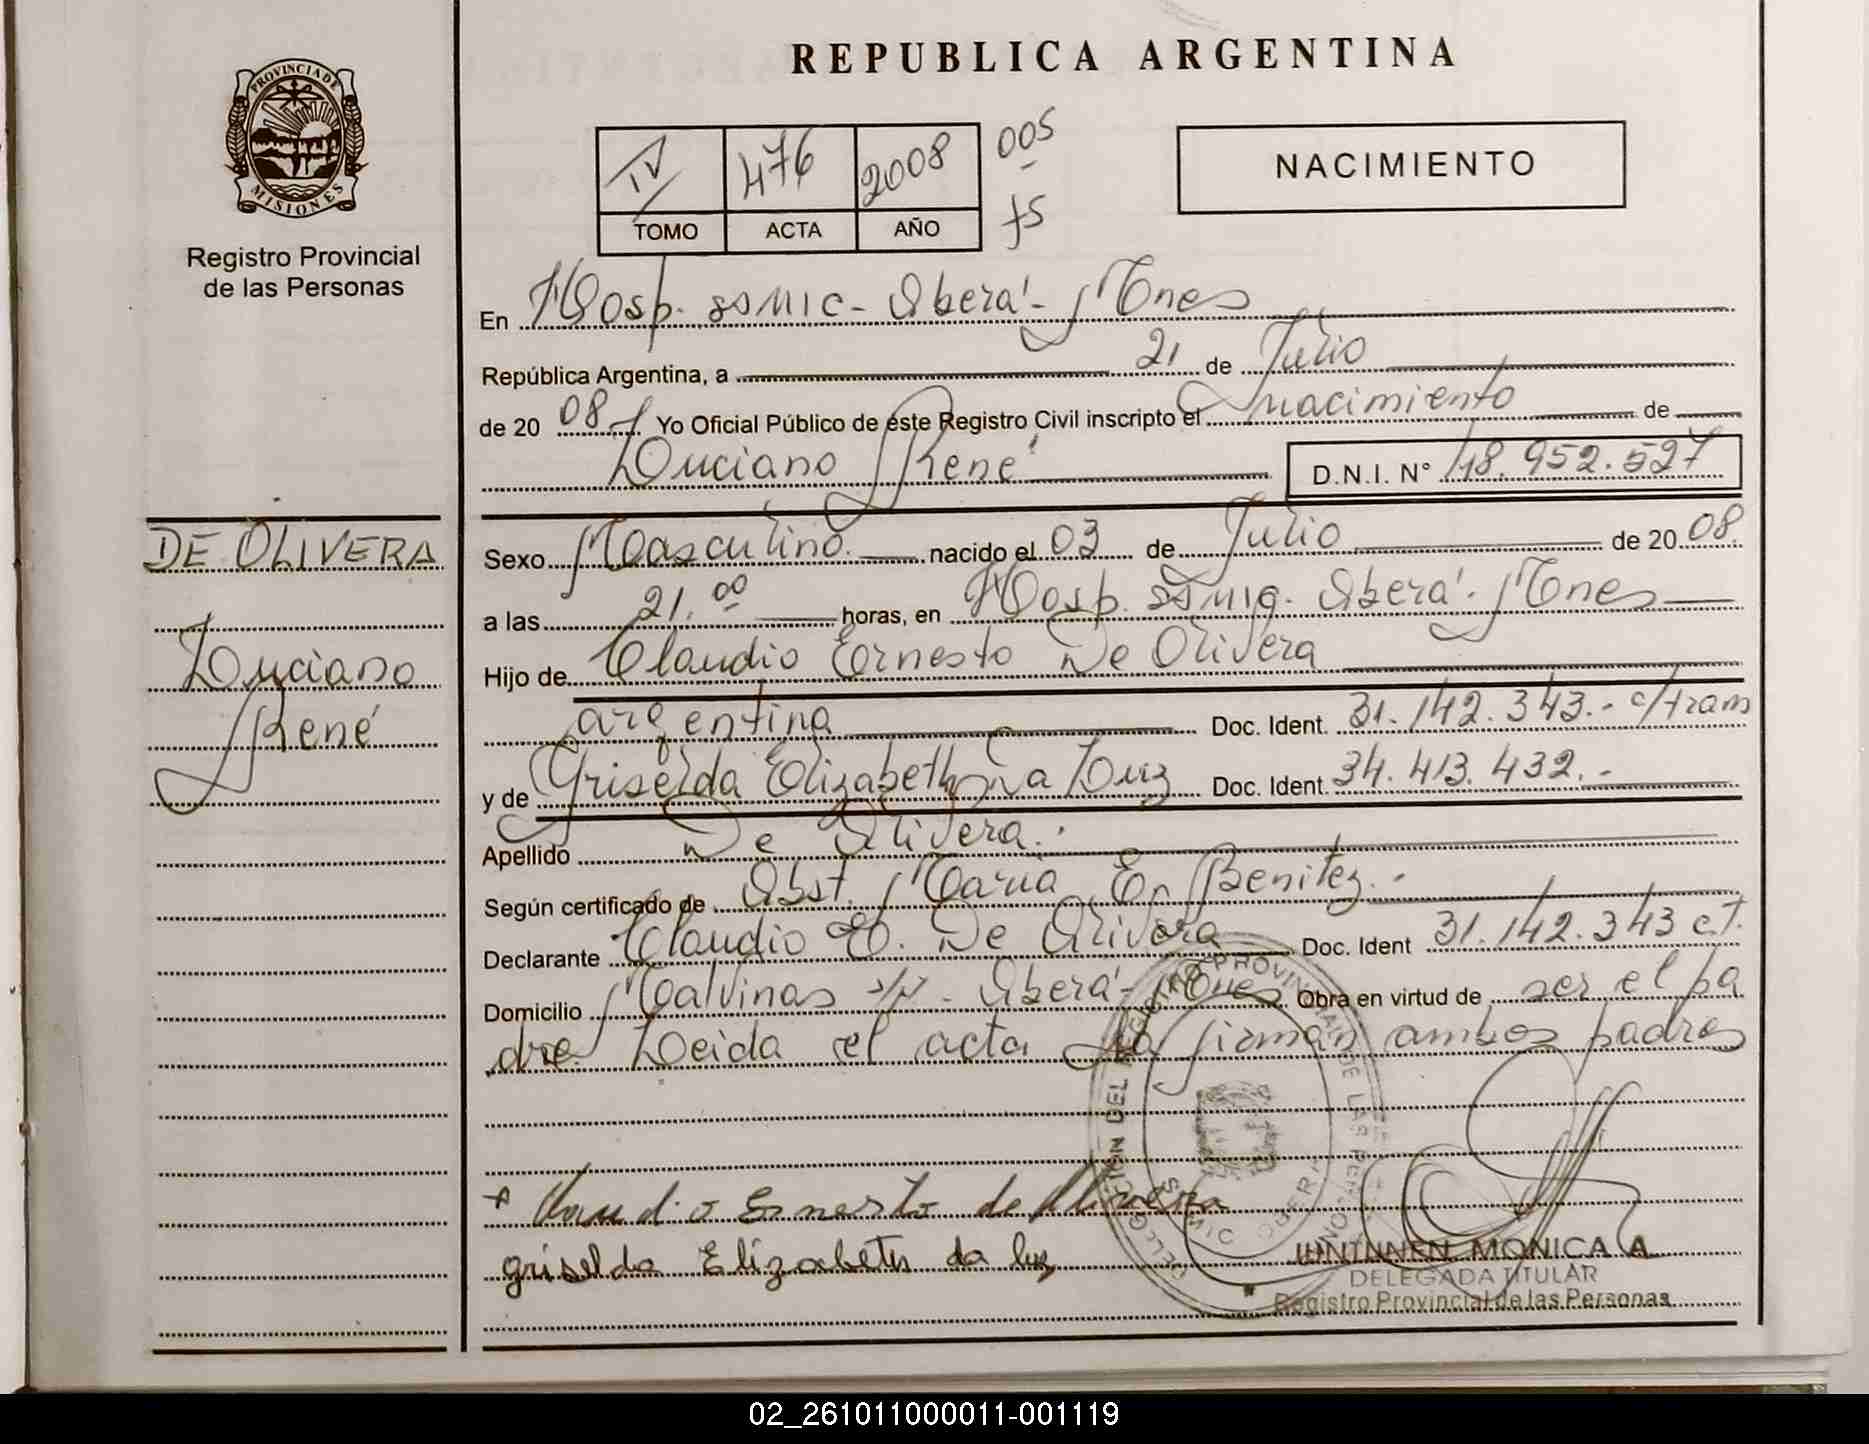 REPUBLICA ARGENTINA
PROVINCIA DE MISIONES
Registro Provincial
de las Personas
IV 476 2008 005
TOMO ACTA AÑO f5
NACIMIENTO
En Hosp. SAMIC - Oberá - Mnes
República Argentina, a 21 de Julio
de 20 08 Yo Oficial Público de este Registro Civil inscripto el nacimiento de
Luciano René D.N.I. N° 48.952.527
DE OLIVERA
Luciano
René
Sexo Masculino. nacido el 03 de Julio de 20 08.
a las 21.00 horas, en Hosp. Oberá. Mnes
Hijo de Claudio Ernesto De Olivera
argentina Doc. Ident. 31.142.343.- c/tram
y de Griselda Elizabeth Da Luz Doc. Ident. 34.413.432.-
Apellido De Olivera.
Según certificado de Obst. Maria E. Benitez.-
Declarante Claudio E. De Olivera Doc. Ident 31.142.343 c.t.
Domicilio Malvinas s/n - Oberá - Mnes Obra en virtud de ser el pa
dre. Leida el acta la firman ambos padres
Claudio Ernesto de Olivera
griselda Elizabeth da luz
DELEGACION DEL REGISTRO PROVINCIAL DE LAS PERSONAS
MONICA A.
DELEGADA TITULAR
Registro Provincial de las Personas
02_261011000011-001119